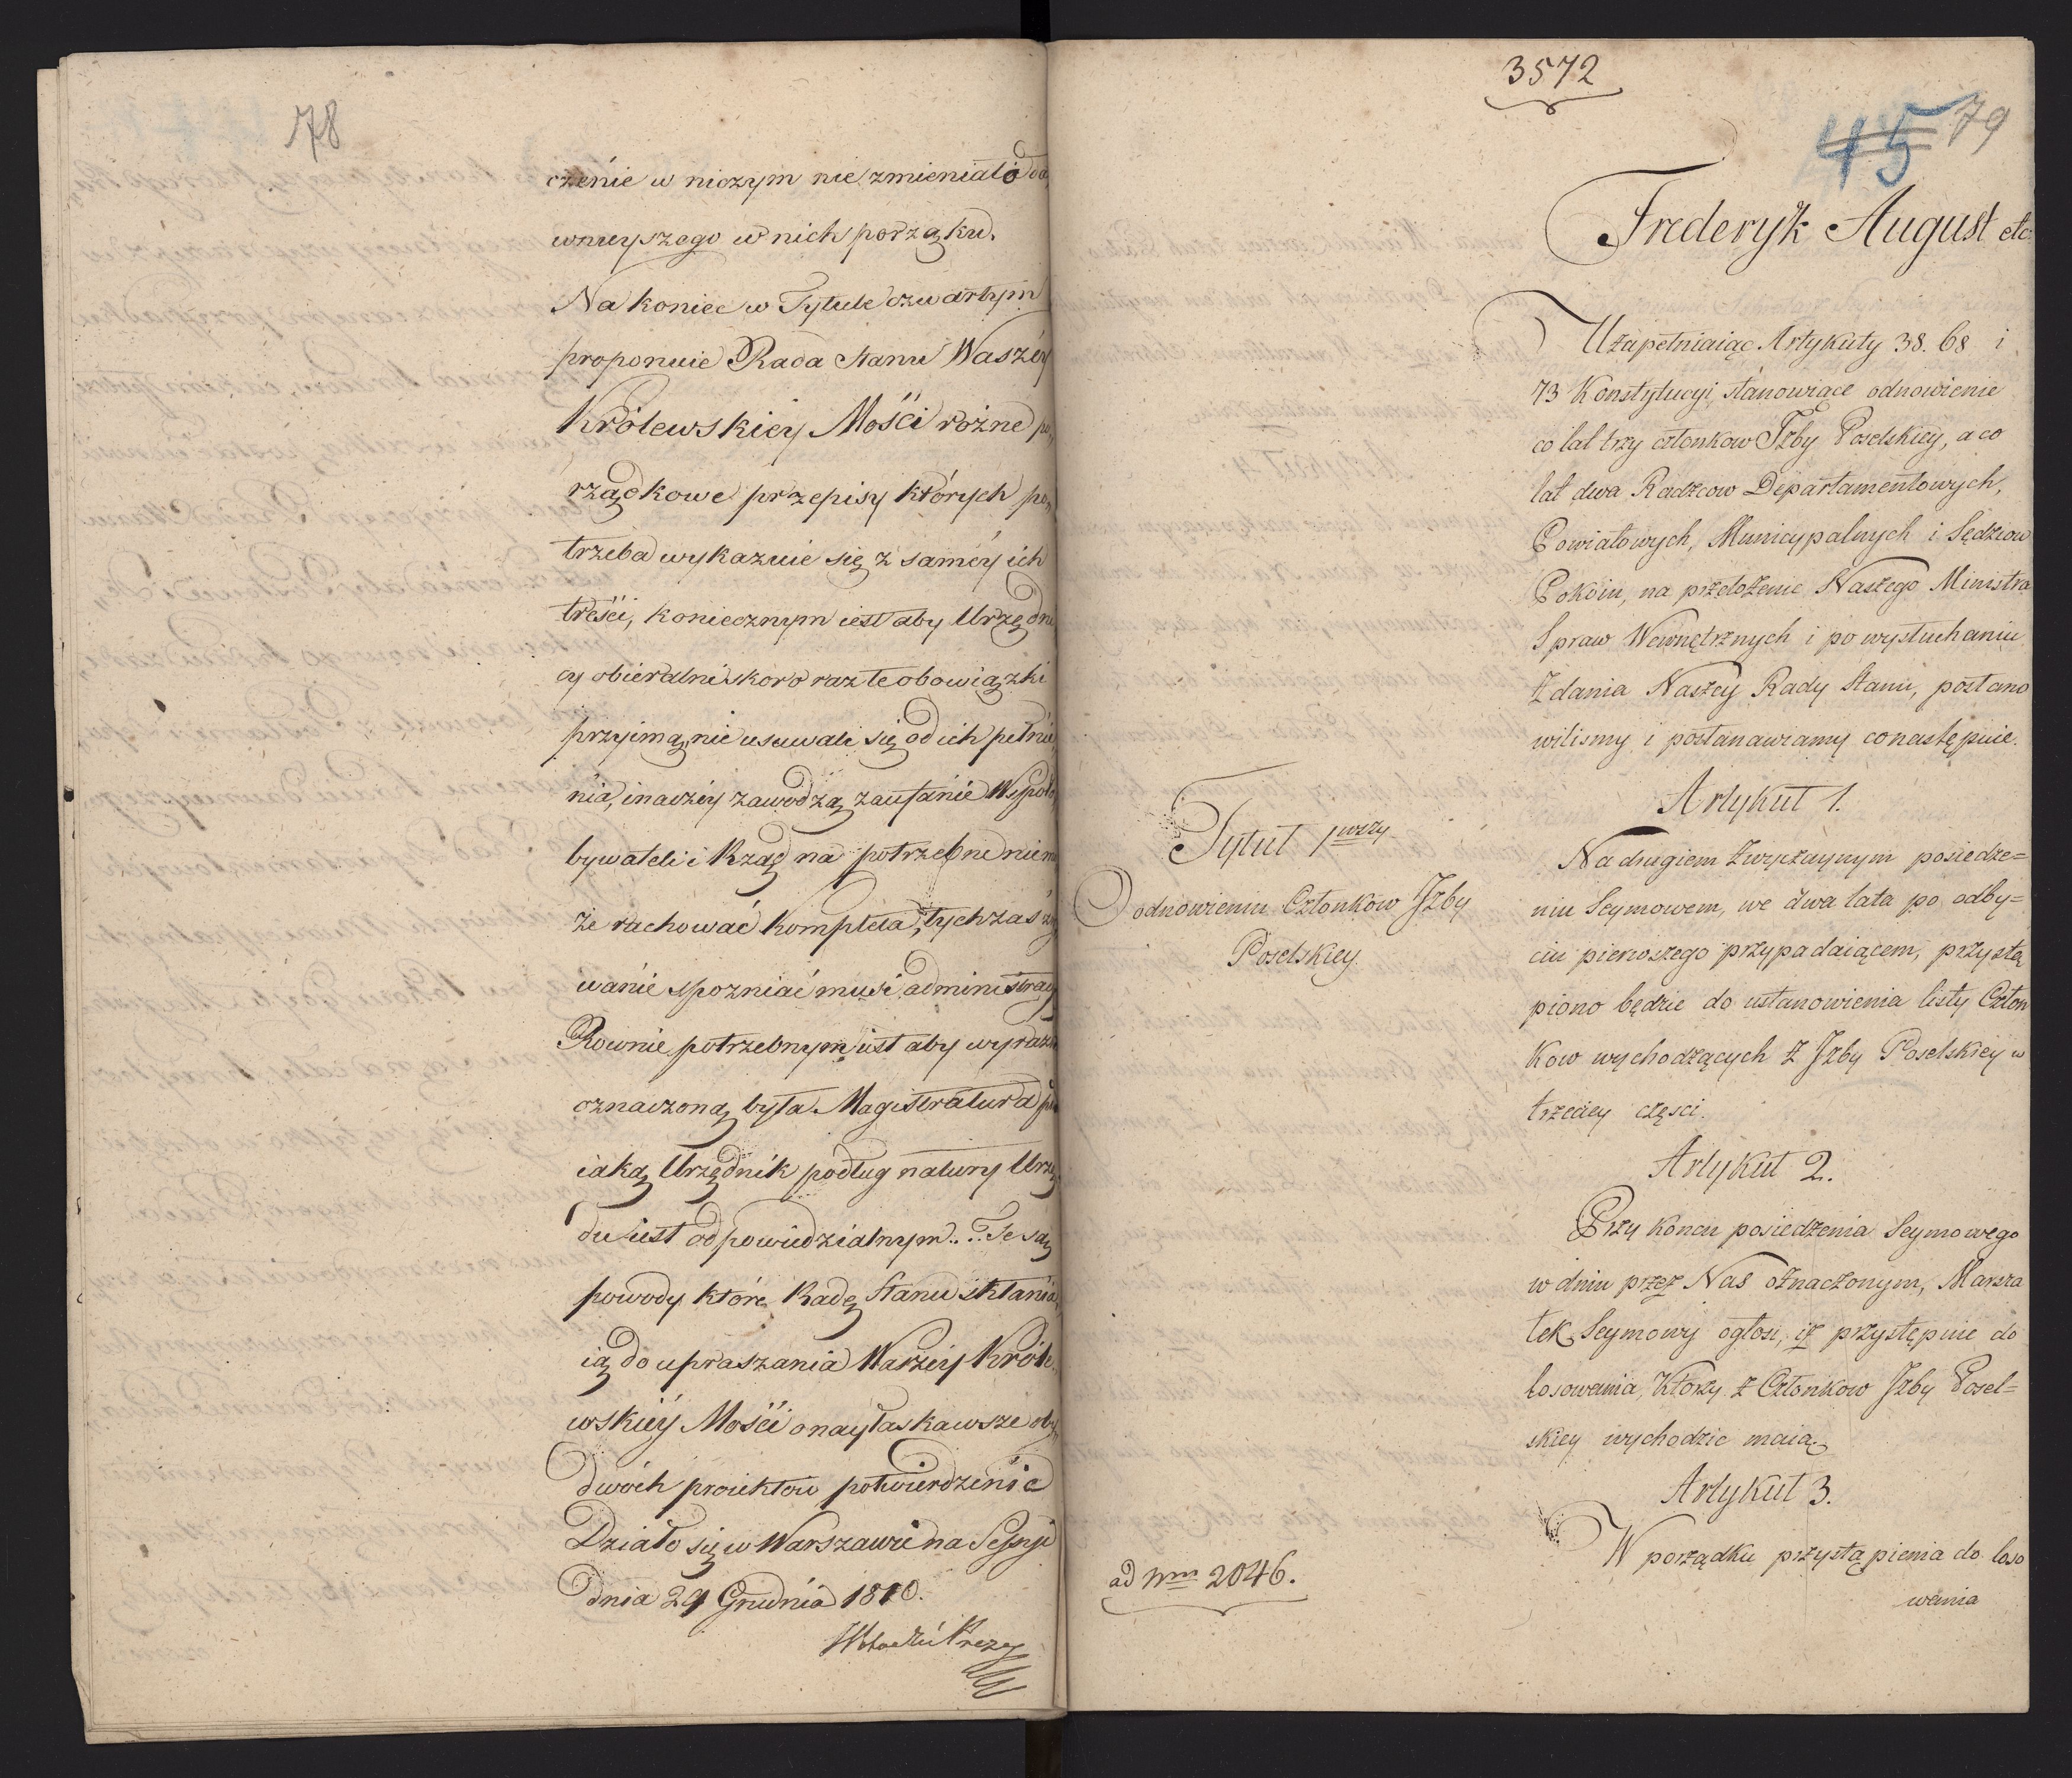 78
czenie w niczym nie zmieniało da
wnieyszego w nich porządku.
Na koniec w Tytule czwartym
proponuie Rada Stanu Waszéy
Królewskiey Mości rożne po,
rządkowe przepisy których po,
trzeba wykazuie się z saméy ich
treści, koniecznym iest aby Urzędni
cy obieralni skoro raz te obowiązki
przyimą, nie usuwali się od ich pełnie,
nia, inaczéy zawodzą zaufanie Wspoło,
bywateli i Rząd na potrzebne nie mo
że rachować kompleta, tych zaś
wanie spozniać musi administracy
Rownie potrzebnym iest aby wyraznie
oznaczoną była Magistratura
iaką Urzędnik podług natury Urzę
du iest odpowiedzialnym. Te są
powody które Radę Stanu skłania,
ią do upraszania Waszéy Króle,
wskiéy Mości o nayłaskawsze oby,
dwóch proiektow potwierdzenie
Działo się w Warszawie na Sessyi
dnia 29 Grudnia 1810.
3572
45 79
Frederyk August etc:
Uzupełniaiąc Artykuły 38. 68 i
73 Konstytucyi, stanowiące odnowienie
co lat trzy członkow Izby Poselskiey, a co
lat dwa Radzcow Departamentowych,
Powiatowych, Municypalnych i Sędziow
Pokoiu, na przełożenie Naszego Ministra
Spraw Wewnętrznych i po wysłuchaniu
Zdania Naszey Rady Stanu, postano
wilismy i postanawiamy co następuie.
Artykuł 1.
Na drugiem zwyczaynym posiedze=
niu Seymowem, we dwa lata po odby=
ciu pierwszego przypadaiącem, przystą
piono będzie do ustanowienia listy Człon
kow wychodzących z Izby Poselskiey w
trzeciey części.
Artykuł 2.
Przy koncu posiedzenia Seymowego
w dniu przez Nas oznaczonym, Marsza
łek Seymowy ogłosi, iż przystępuie do
losowania, którzy z Członkow Izby Posel=
skiey wychodzic maią.
Artykuł 3.
W porządku przystąpienia do loso
wania
Tytuł 1wszy
O odnowieniu Członkow Izby
Poselskiey
ad Nrm 2046.